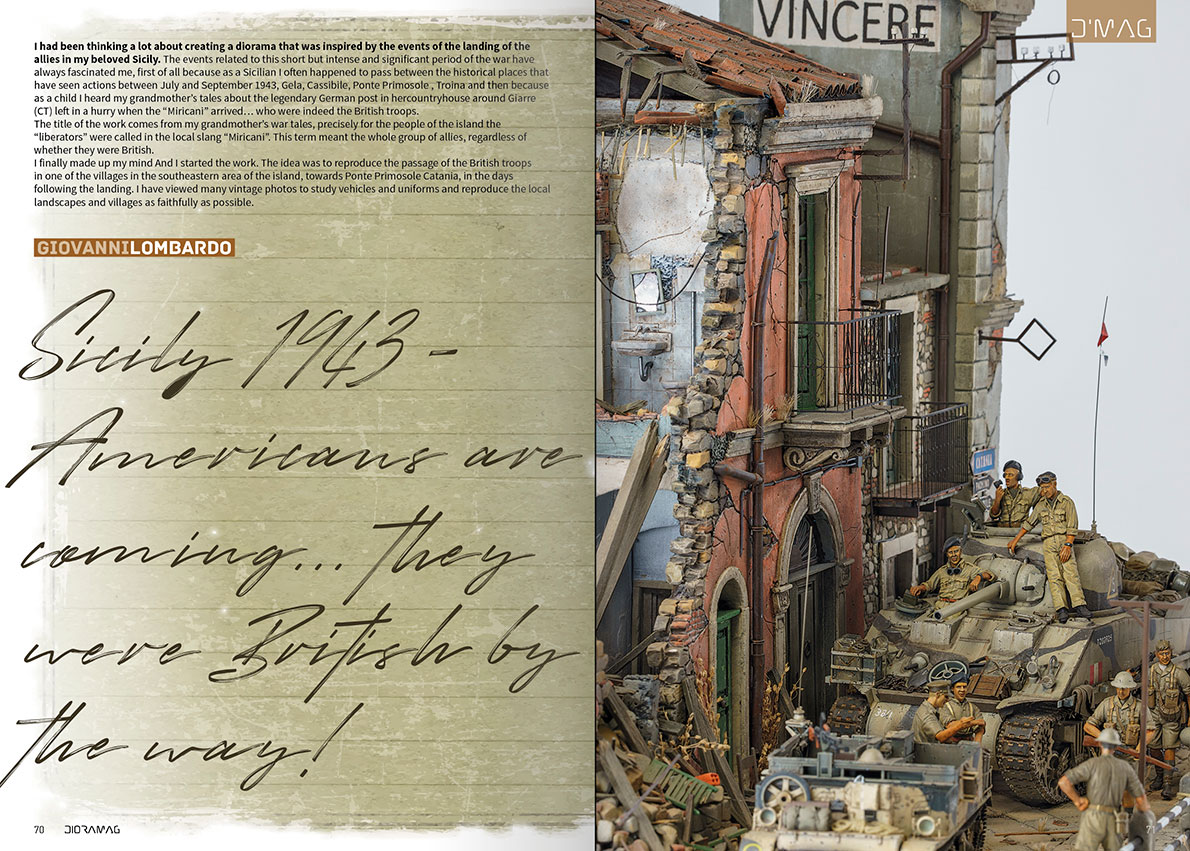 I had been thinking a lot about creating a diorama that was inspired by the events of the landing of the
allies in my beloved Sicily. The events related to this short but intense and significant period of the war have
always fascinated me, first of all because as a Sicilian I often happened to pass between the historical places that
have seen actions between July and September 1943, Gela, Cassibile, Ponte Primosole , Troina and then because
as a child I heard my grandmother's tales about the legendary German post in hercountryhouse around Giarre
(CT) left in a hurry when the “Miricani” arrived… who were indeed the British troops.
The title of the work comes from my grandmother's war tales, precisely for the people of the island the
“liberators” were called in the local slang “Miricani”. This term meant the whole group of allies, regardless of
whether they were British.
I finally made up my mind And I started the work. The idea was to reproduce the passage of the British troops
in one of the villages in the southeastern area of the island, towards Ponte Primosole Catania, in the days
following the landing. I have viewed many vintage photos to study vehicles and uniforms and reproduce the local
landscapes and villages as faithfully as possible.
GIOVANNILOMBARDO
Sicily 1943 -
Americans are
coming... they
were British by
the way!
70 DIORAMAG
VINCERE
D'MAG
CATANIA